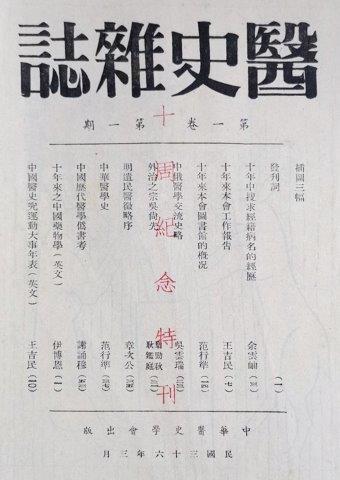 醫史雜誌
第一卷第一期
十周紀念特刊
插圖三幅
發刊詞 (一)
十年中搜求經籍病名的經歷 余雲岫 (三)
十年來本會工作報告 王吉民 (七)
十年來本會圖書館的概況 范行準
中俄醫學交流史略 吳雲瑞
外治之宗吳尚先 耿鑑庭
明遺民醫徵略序 章次公
中華醫學史 范行準
中國歷代醫學僞書考 謝誦穆
十年來之中國藥物學(英文) 伊博恩 (1)
中國醫史究運動大事年表(英文) 王吉民 (10)
中華醫史學會出版
民國三十六年三月